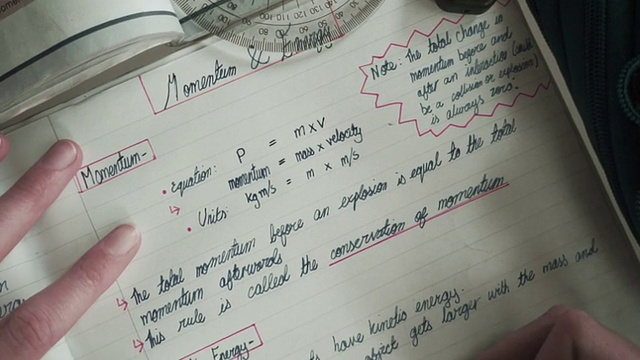 Momentum & Energy
Note: The total change in
momentum before and
after an interaction (
be a collision or explosion)
is always zero.
Momentum-
• Equation: P = m x v
momentum = mass x velocity
• Units: kg m/s = m x m/s
The total momentum before an explosion is equal to the total
momentum afterwords
This rule is called the conservation of momentum
Energy-
have kinetic energy.
object gets larger with the mass and